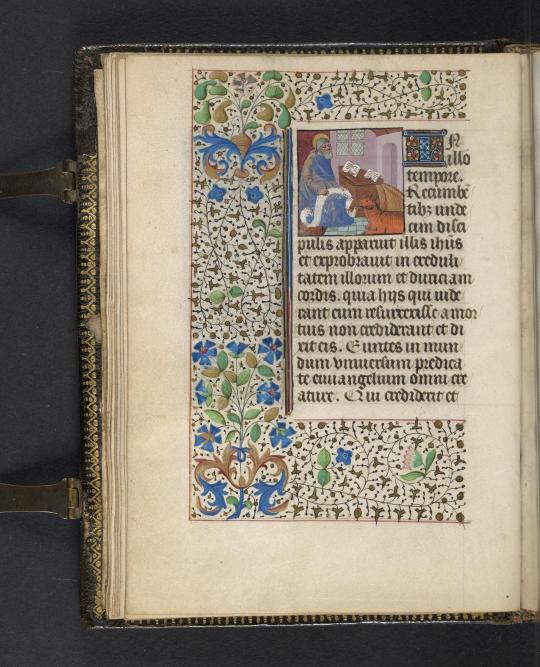 IN
illo
tempore.
Recumbē
tibꝫ unde
cim disci
pulis apparuit illis ihūs
et exprobrauit in creduli
tatem illorum et duriciam
cordis. quia hijs qui uide
rant eum resurrexisse a mor
tuis non crediderant et di
xit eis. Euntes in mun
dum vniuersum predica
te euuangelium omni cre
ature. Qui crediderit et